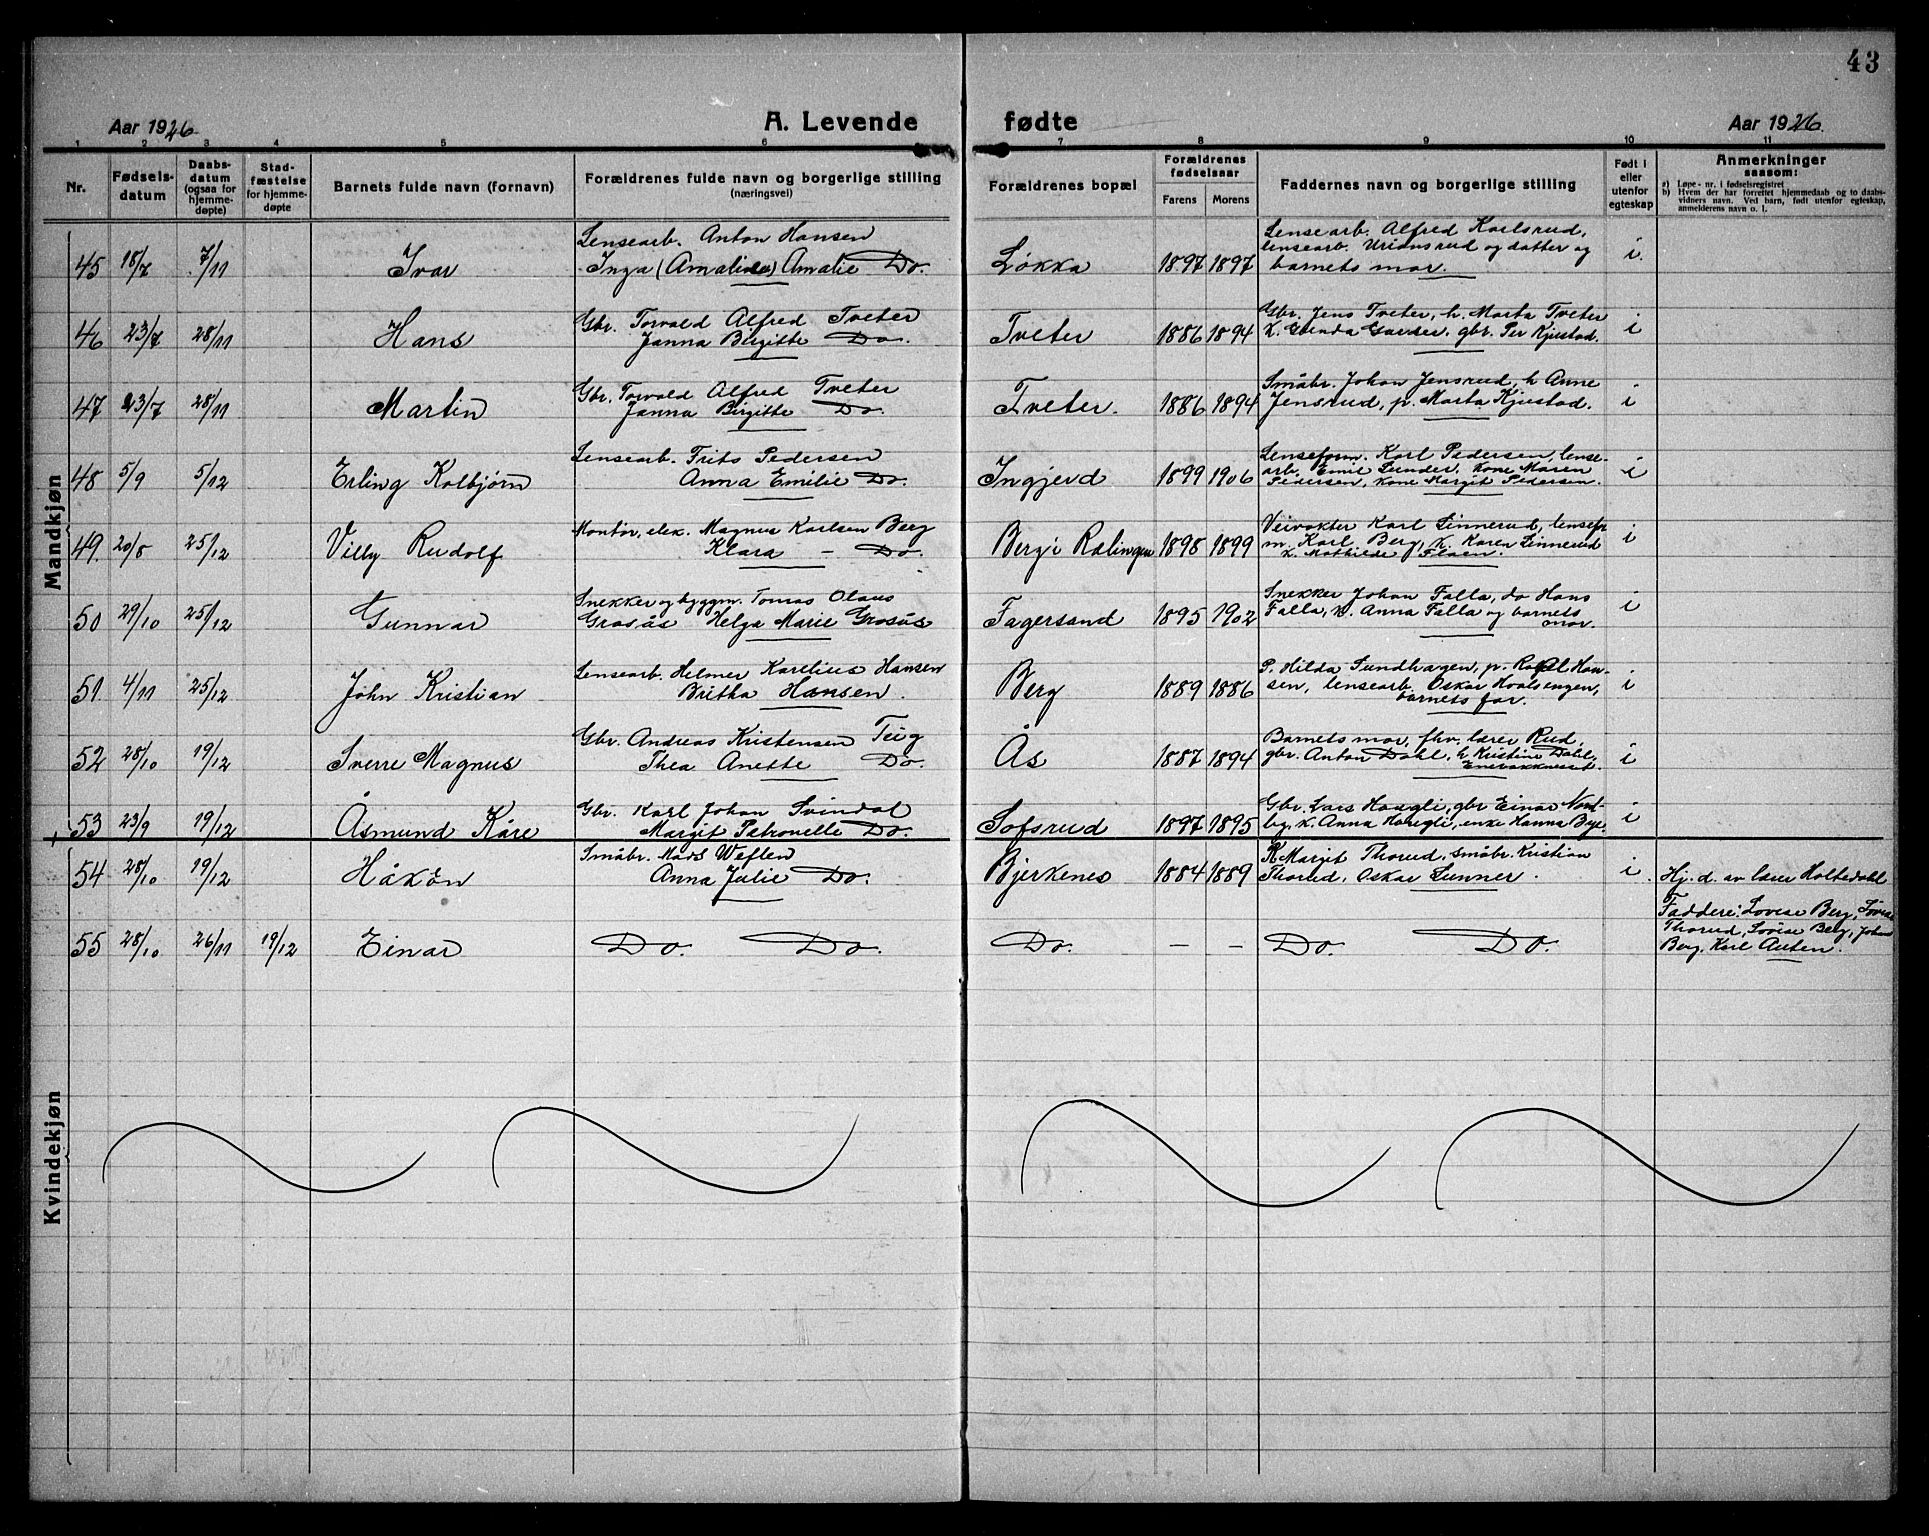 43
Aar 1926
A. Levende fødte
Aar 1926.
1 2 3 4 5 6 7 8 9 10 11
Nr.
Fødsels-
datum
Daabs-
datum
(ogsaa for
hjemme-
døpte)
Stad-
fæstelse
for hjemme-
døpte
Barnets fulde navn (fornavn)
Forældrenes fulde navn og borgerlige stilling
(næringsvei)
Forældrenes bopæl
Forældrenes
fødselsaar
Farens Morens
Faddernes navn og borgerlige stilling
Født i
eller
utenfor
egteskap
Anmerkninger
saasom:
a) Løpe-nr. i fødselsregistret
b) Hvem der har forrettet hjemmedaab og to daabs-
vidners navn. Ved barn, født utenfor egteskap,
anmelderens navn o. l.
Mandkjøn
45 18/7 7/11 Ivar
Lensearb. Anton Hansen
Inga (Amalie) Amalie Do.
Løkka 1897 1897
Lensearb. Alfred Karlsrud,
lensearb. Uriansrud og datter og
barnets mor.
i.
46 23/7 28/11 Hans
Gbr. Torvald Alfred Tveter
Janna Birgitte Do.
Tveter 1886 1894
Gbr. Jens Tveter, h. Marta Tveter
k. Gunda, gbr. Per Kjustad.
i
47 23/7 28/11 Martin
Gbr. Torvald Alfred Tveter
Janna Birgitte Do.
Tveter. 1886 1894
Småbr. Johan Jensrud, h Anne
Jensrud, p. Marta Kjustad.
i
48 5/9 5/12 Erling Kolbjørn
Lensearb. Frits Pedersen
Anna Emilie Do.
Ingjerd 1899 1906
Lenseform. Karl Pedersen, lense-
arb. Emil Sunder, kone Maren
Pedersen, kone Margit Pedersen.
i
49. 20/8 25/12 Villy Rudolf
Montør, elek. Magnus Karlsen Berg
Klara — Do.
Berg i Rælingen 1898 1899
Veivokter Karl Linnerud, lensefr
m. Karl Berg, k. Karen Linnerud
k. Mathilde Flaen.
i
50 29/10 25/12 Gunnar
Snekker og byggm. Tomas Olaus
Grosås Helga Marie Grosås
Fagersand 1895 1902
Snekker Johan Falla, do Hans
Falla, k. Anna Falla og barnets
mor.
i
51. 4/11 25/12 John Kristian
Lensearb. Helmer Karelius Hansen
Britha Hansen.
Berg 1889 1886
P. Hilda Sundhagen, p. Ragl. Han-
sen, lensearb. Oskar,
barnets far.
i
52 28/10 19/12 Sverre Magnus
Gbr. Andreas Kristensen Teig
Thea Anette Do.
Ås 1887 1894
Barnets mor, fhv. lærer Rud,
gbr. Anton Dahl, h. Kristine Dahl,
Enebakkneset.
i
53 23/9 19/12 Åsmund Kåre
Gbr. Karl Johan Svindal
Margit Petronelle Do.
Sofsrud 1897 1895
Gbr. Lars Haugli, gbr Einar Nord-
by, k. Anna Haugli, enke Hanna Bye.
i
54 28/10 19/12 Håkon
Småbr. Mads Weften
Anna Julie Do.
Bjerkenes 1884 1889
K. Margit Thorud, småbr. Kristian
Thorud, Oskar Sunner.
i.
Hj. d. av lærer Holtedahl
Faddere: Lovise Berg,
Thorud, Lovise Berg, Johan
Berg, Karl Auten.
55 28/10 26/11 19/12 Einar
Do. Do.
Do. — — Do. Do.
Kvindekjøn